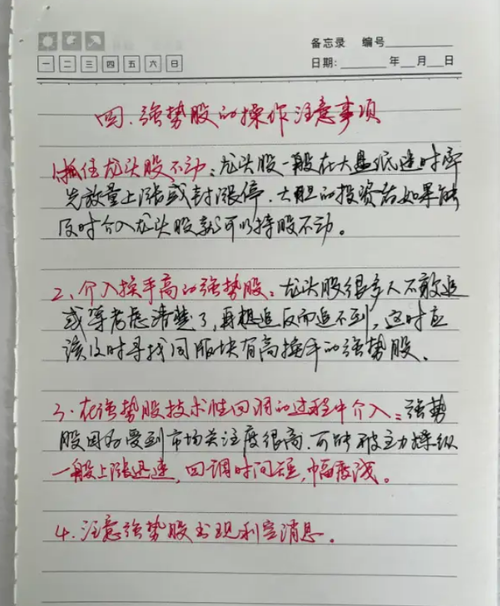 备忘录 编号
一 二 三 四 五 六 日
日期: 年 月 日
四.强势股的操作注意事项
1.抓住龙头股不动:龙头股一般在大盘低迷时率
先放量上涨或封涨停.大胆的投资者如果能
及时介入龙头股就可以持股不动。
2、介入换手高的强势股:龙头股很多人不敢追
或等考虑清楚了,再想追反而追不到,这时应
该及时寻找同版块有高换手的强势股。
3、在强势股技术性回调的过程中介入:强势
股因为受到市场关注度很高.可能被主力操纵
一般上涨迅速,回调时间短,幅度浅。
4.注意强势股出现利空消息。